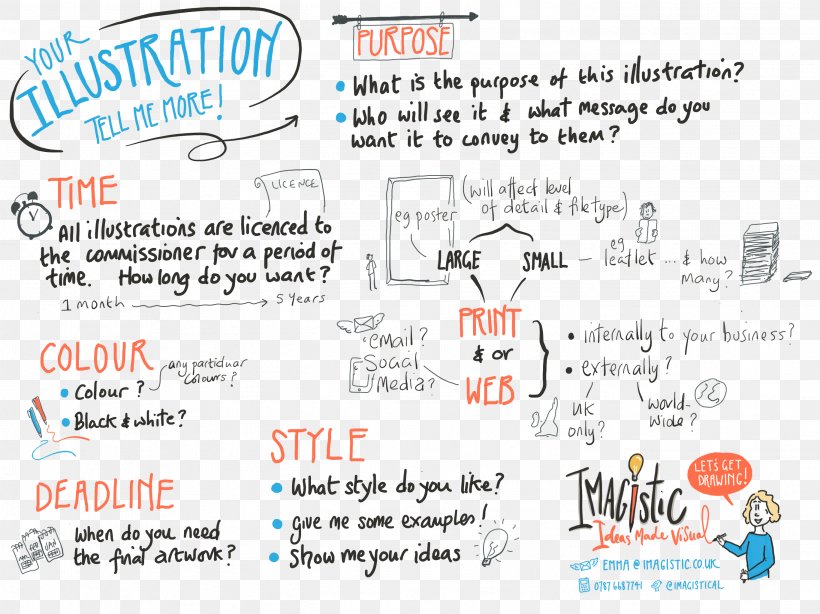 YOUR
ILLUSTRATION
TELL ME MORE!
PURPOSE
What is the purpose of this illustration?
Who will see it & what message do you
want it to convey to them?
TIME
LICENCE
All illustrations are licenced to
the commissioner for a period of
time. How long do you want?
1 month 5 years
eg poster
(will affect level
of detail & filetype)
LARGE SMALL
eg
leaflet ... & how
many?
PRINT
& or
WEB
email?
Social
Media?
internally to your business?
externally?
UK
only?
world-
wide?
COLOUR
any particular
colours?
Colour?
Black & white?
STYLE
What style do you like?
give me some examples!
Show me your ideas
DEADLINE
When do you need
the final artwork?
JAN
IMAGISTIC
Ideas Made Visual
LET'S GET
DRAWING!
EMMA@IMAGISTIC.CO.UK
0787 6687741 @IMAGISTICAL